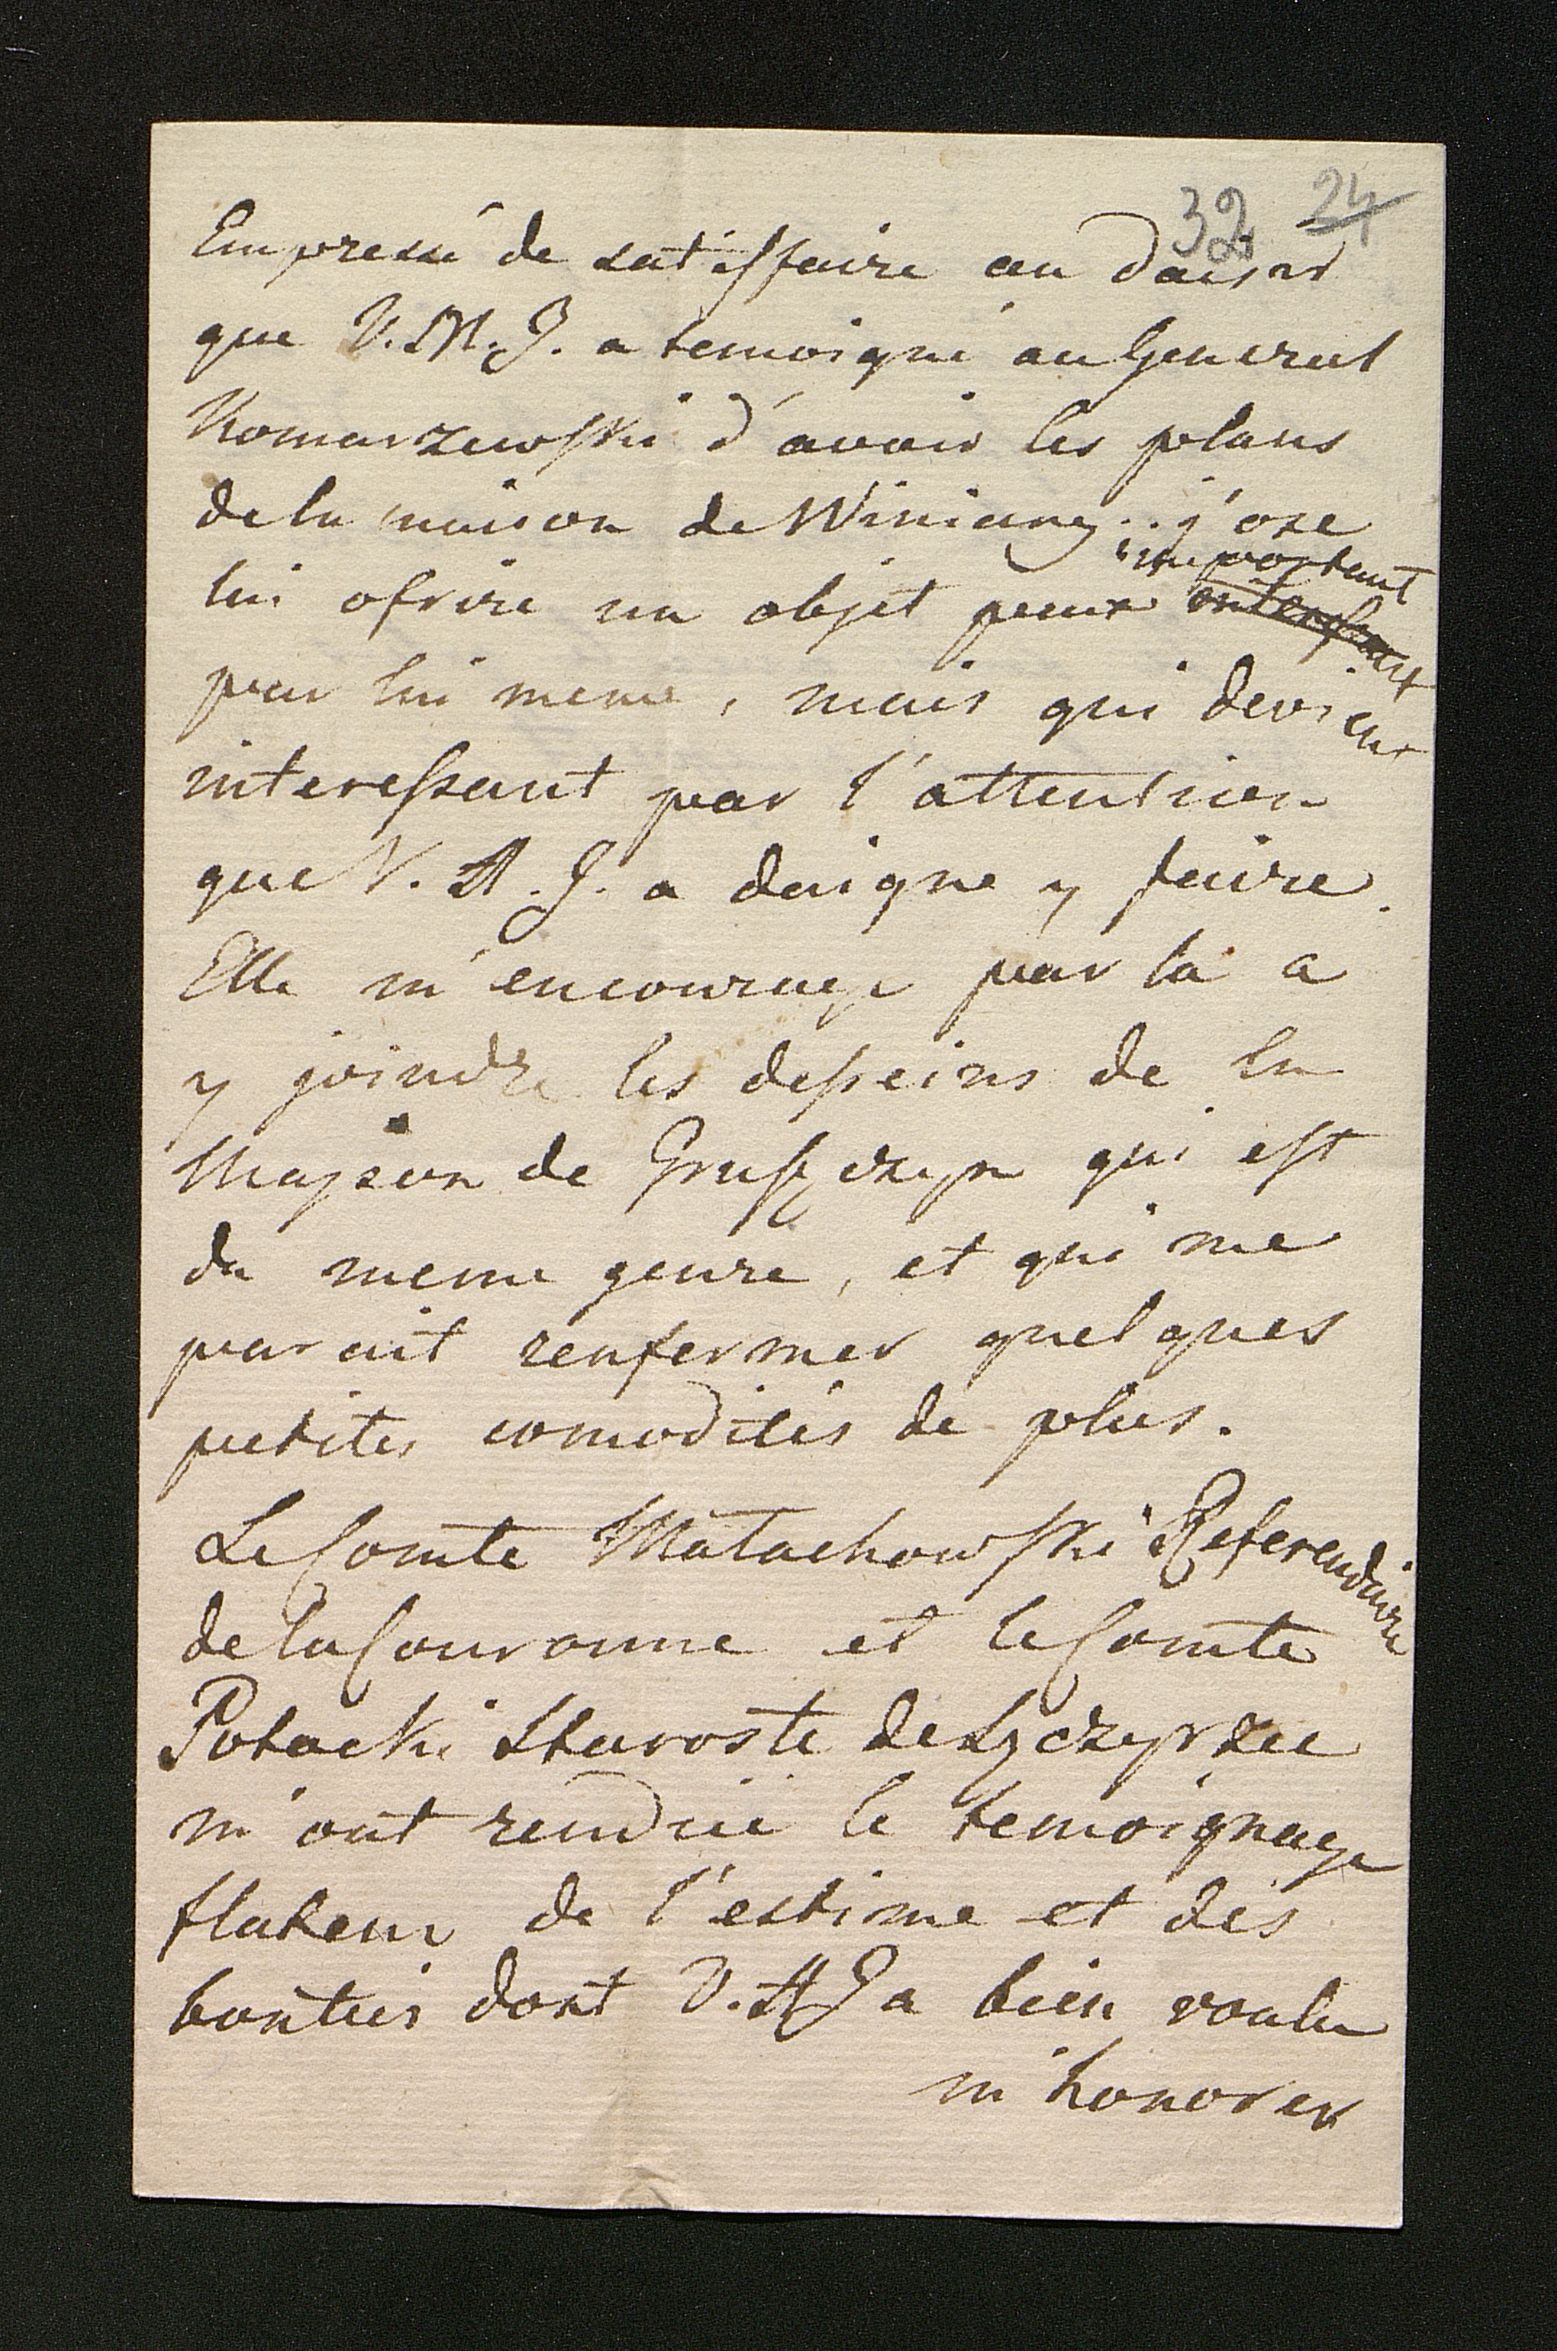 32 24
Empressé de satisfaire au daisir
que V. A. J. a temoigné au General
Komarzewski d'avoir les plans
de la maison de Winiary.. j'ose
important
lui ofrire un objet peux interessant
par lui meme, mais qui devient
interessant par l'attention
que V. A. J. a daigne y faire.
Elle m'encourage par la a
y joindre les desseins de la
Mayson de Gruszczyn qui est
du meme genre, et qui me
parait renfermer quelques
petites comodités de plus.
Le Comte Małachowski Referendaire
de la Couronne et le Comte
Potocki Staroste de Szczyrzec
m'ont rendue le temoignage
flateur de l'estime et des
bontées dont V. A J a bien voulu
m'honorer